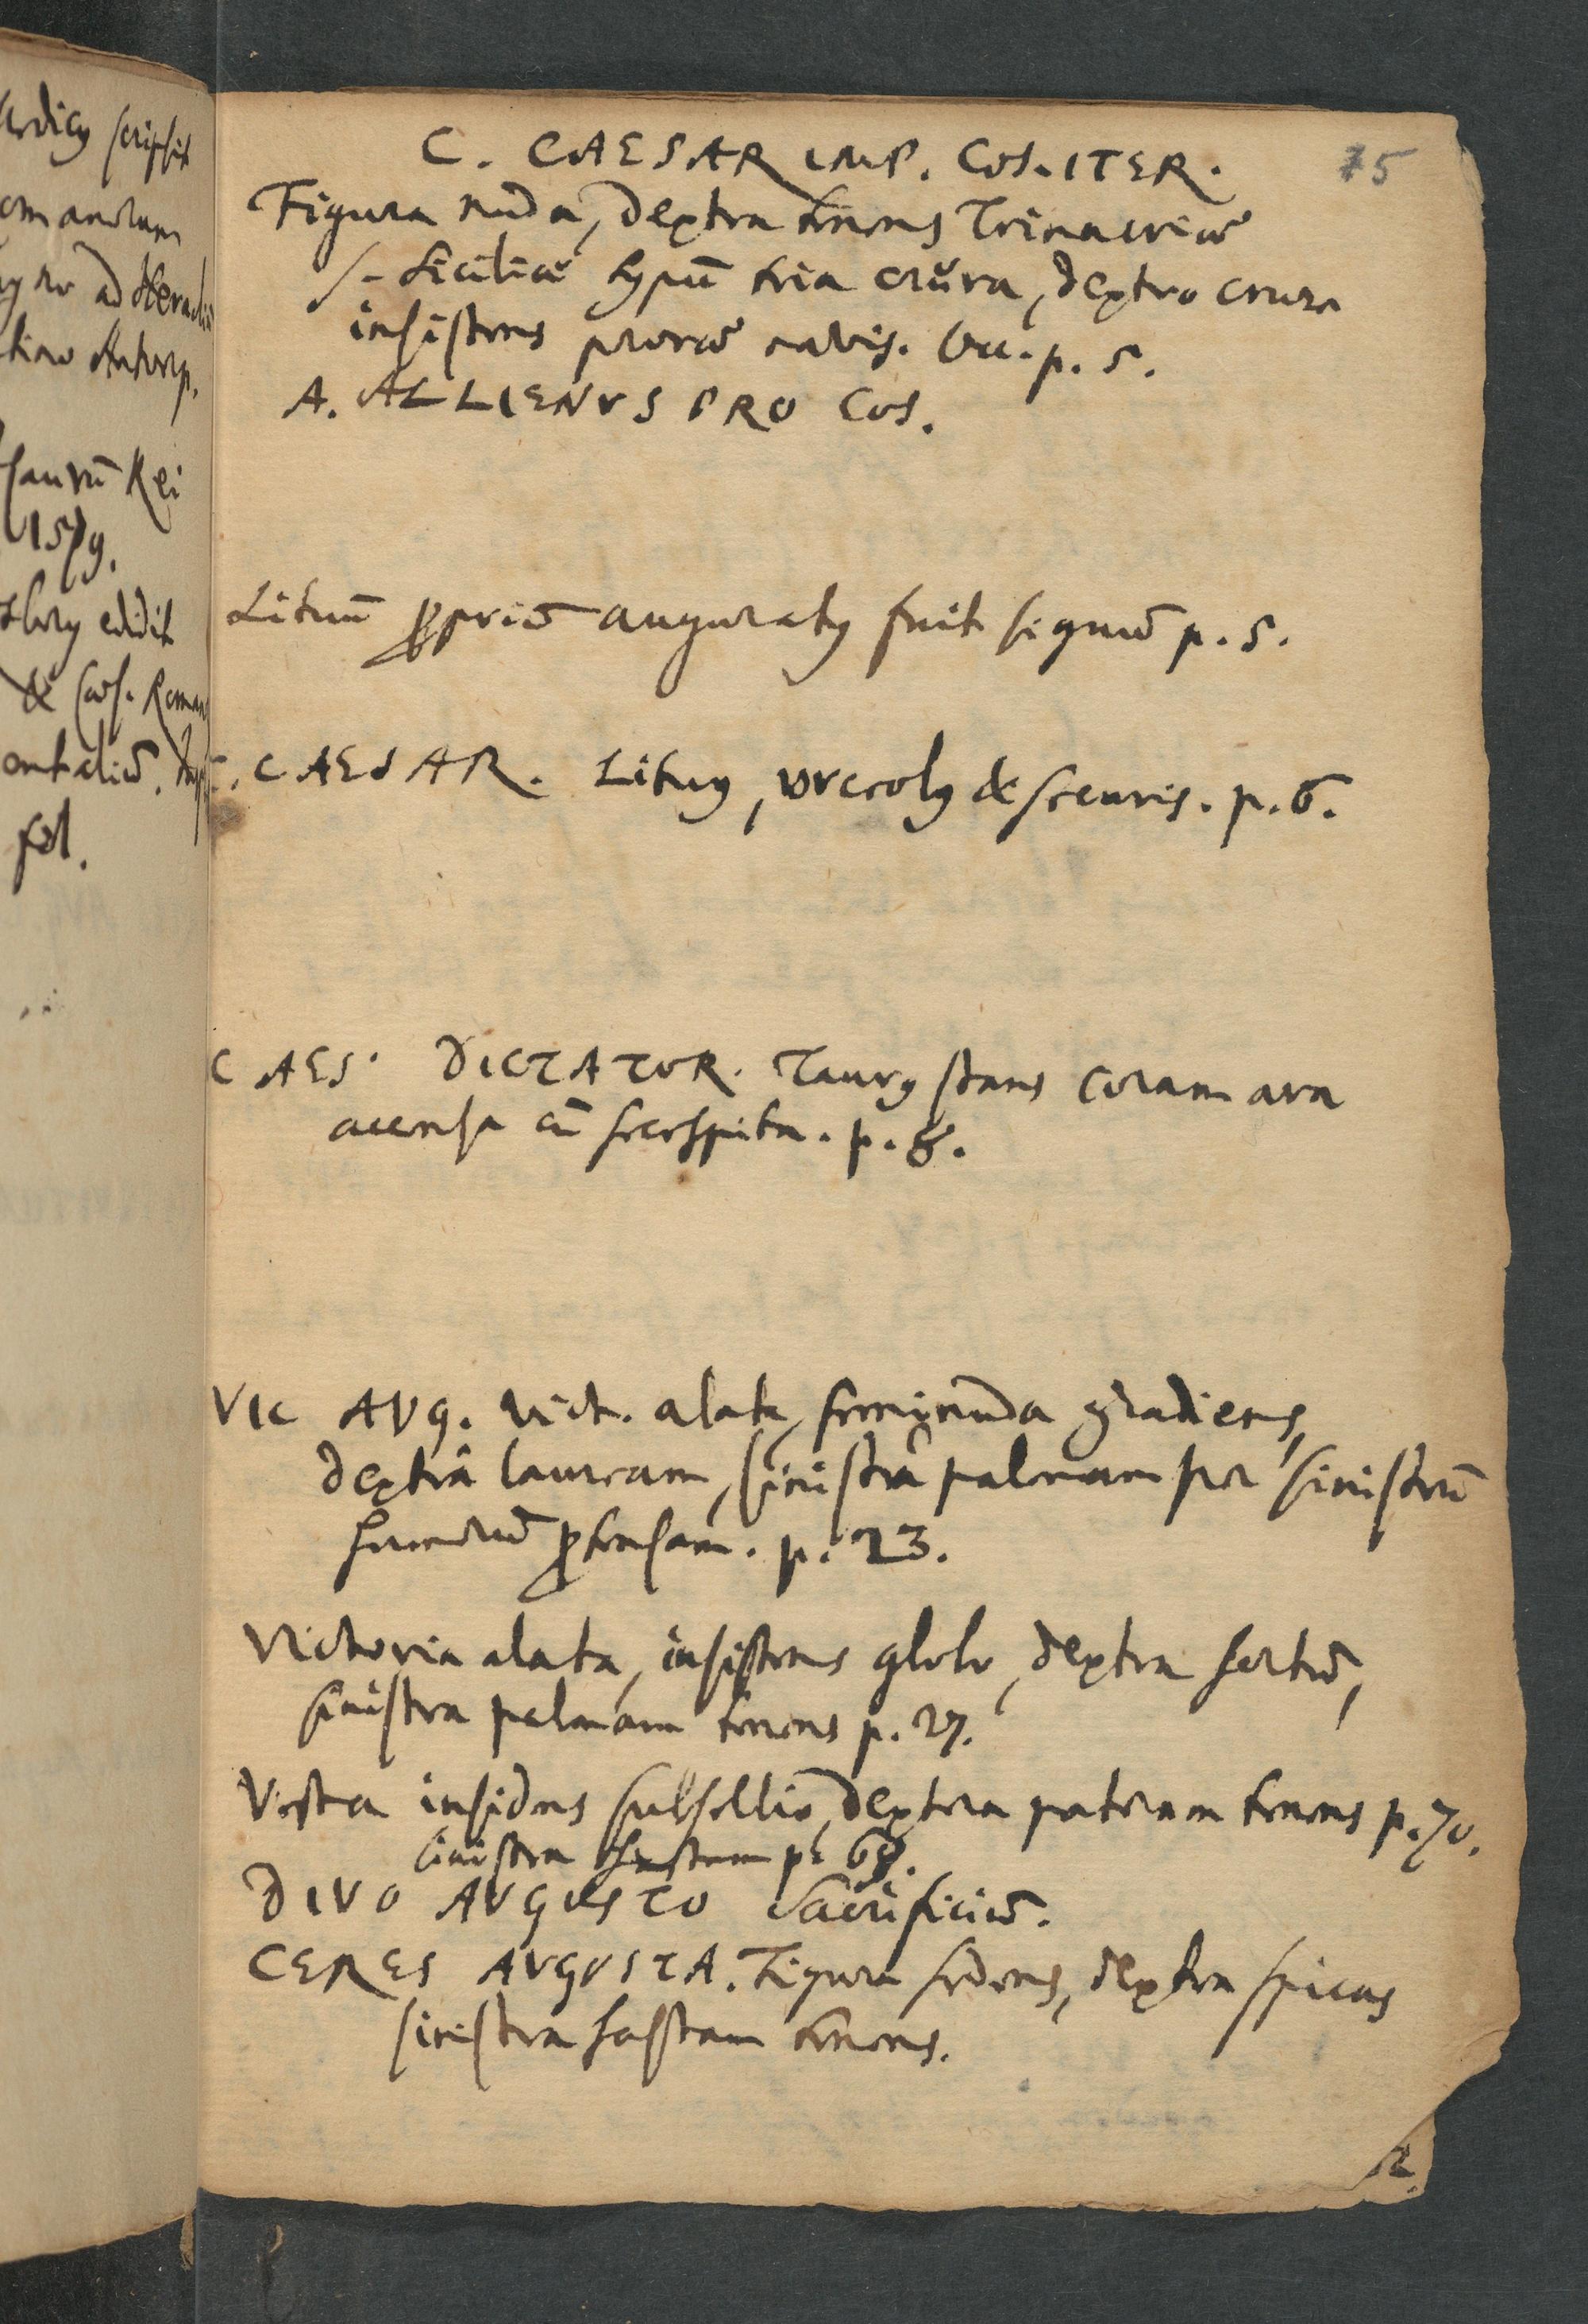 ardicꝯ scripsit
omanorum
ad Heraclii
Antverp.
saurū Rei
1579.
edidit
& Caes. Roman
fol.
75
C. CAESAR IMP. COS. ITER.
Figura nuda, dextra tenens Trinacriae
s. Siciliae typū tria crŭra, dextro crure
insistens prorae navis. Occ. p. 5.
A. ALLIENVS PRO COS.
Lituū ꝓpriū auguratꝯ fuit signū p. 5.
C. CAESAR. Lituꝯ, vrceolꝯ & securis. p. 6.
CAES. DICTATOR. Taurꝯ stans coram ara
accensa cū secespita. p. 8.
VIC AVG. Vict. alata, seminuda gradiens,
dextrâ lauream, sinistrâ palmam per sinistrū
humerū ꝓtensam. p. 23.
Victoria alata, insistens globo, dextra sertū,
sinistra palmam tenens p. 27.
Vesta insidens subsellio, dextera pateram tenens p. 70.
sinistra hastam p. 68.
DIVO AVGVSTO Sacrificiū.
CERES AVGVSTA. Figura sedens, dextra spicas
sinistra hastam tenens.